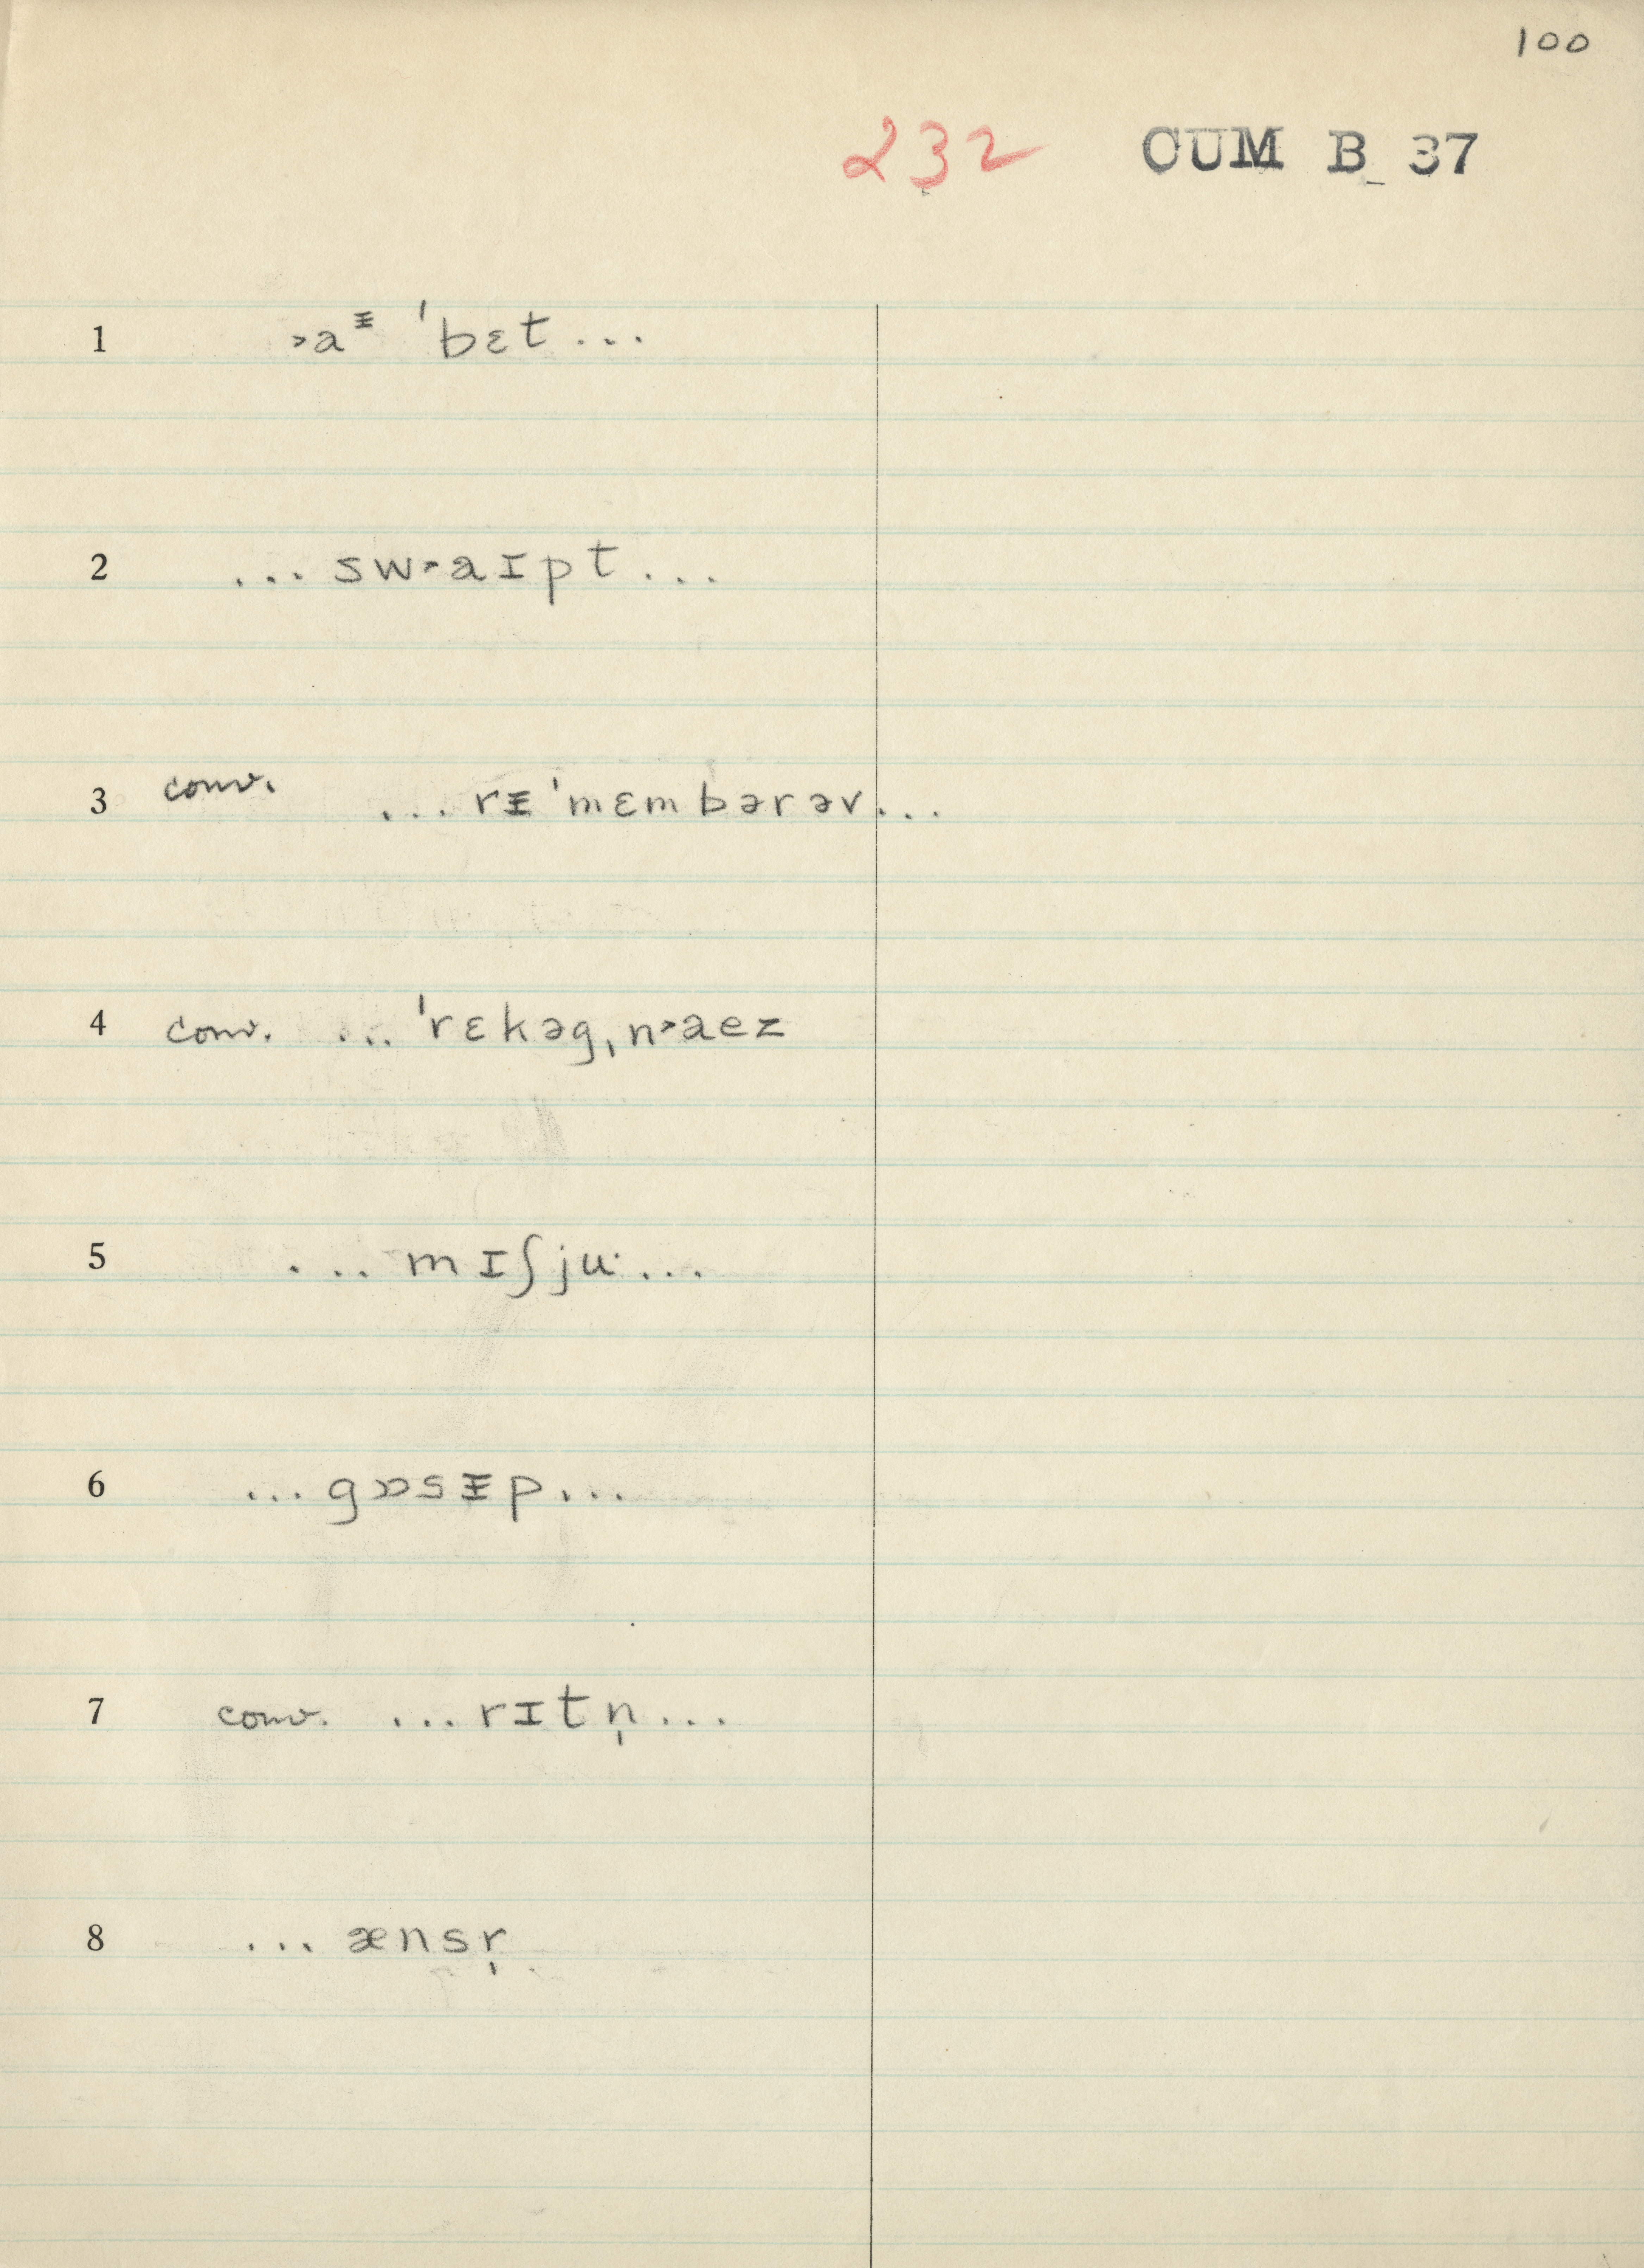 100
232 CUM B 37
1 ˃aᵻ ˈbɛt...
2 ...sw˃aɪpt...
3 conv. ...rᵻˈmɛmbərəv...
4 conv. ...ˈrɛkəgˌn˃aez
5 ...mɪʃju·...
6 ...gɒsᵻp...
7 conv. ...rɪtn̩...
8 ...ænsr̩